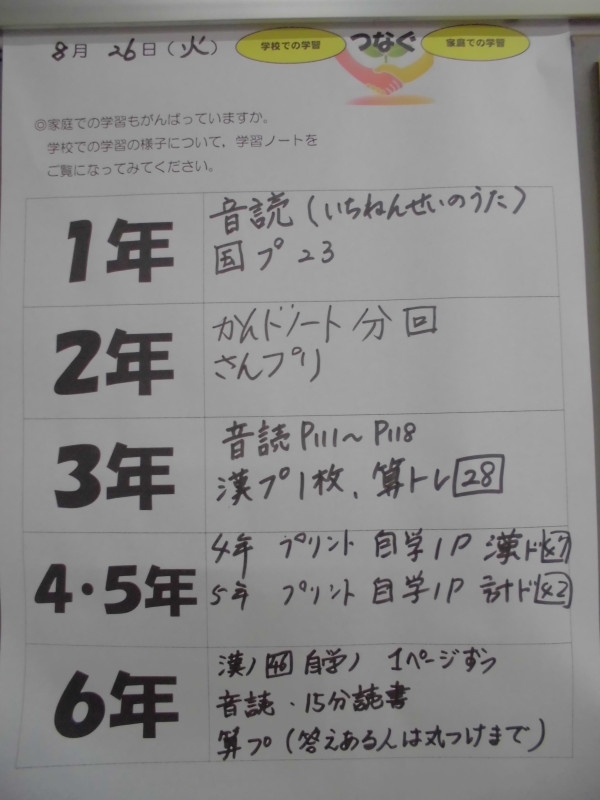 8月 26日(火)
学校での学習 つなぐ 家庭での学習
◎家庭での学習もがんばっていますか。
学校での学習の様子について、学習ノートを
ご覧になってみてください。
1年
音読(いちねんせいのうた)
国プ 23
2年
かんドノート 分 回
さんプリ
3年
音読 P111〜P118
漢プ1枚、算トレ28
4・5年
4年 プリント 自学1P 漢ド47
5年 プリント 自学1P 計ド42
6年
漢ノ46 自学ノ 1ページずつ
音読・15分読書
算プ(答えある人は丸つけまで)